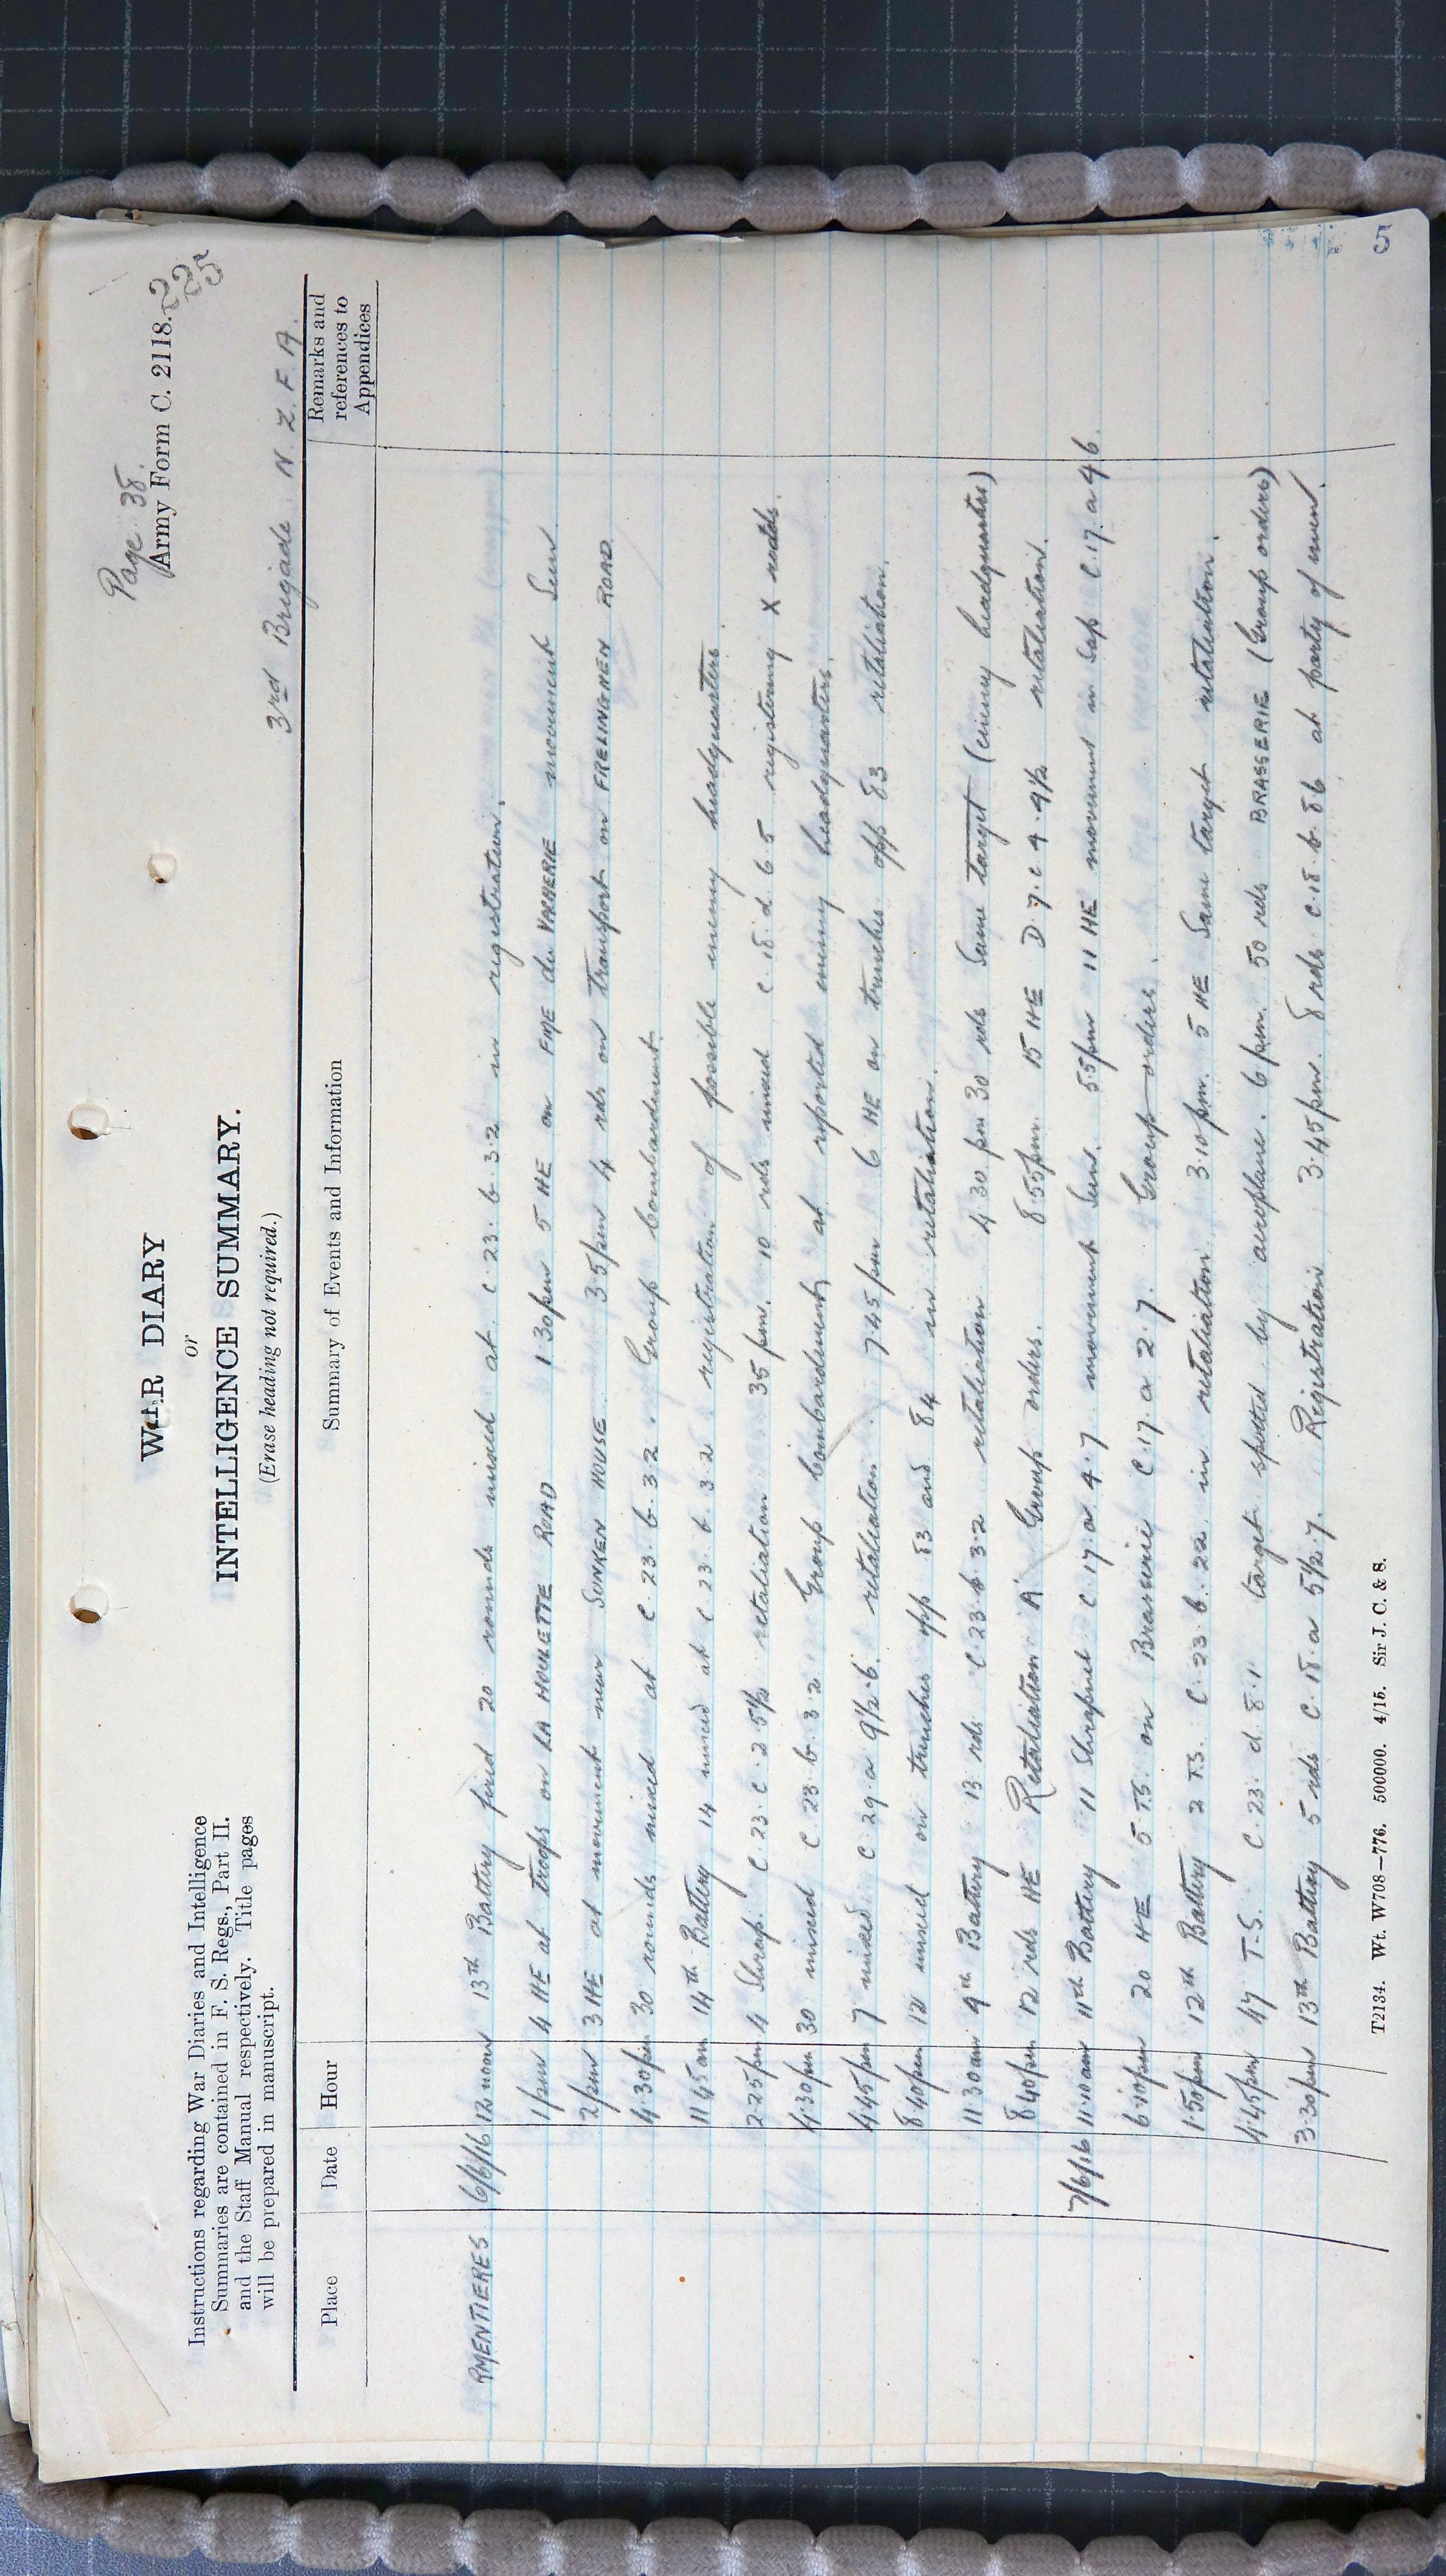 Page 38.
Army Form C. 2118.
225
WAR DIARY
or
INTELLIGENCE SUMMARY.
(Erase heading not required.)
Instructions regarding War Diaries and Intelligence
Summaries are contained in F. S. Regs., Part II.
and the Staff Manual respectively. Title pages
will be prepared in manuscript.
3rd Brigade N. Z. F. A.
Place Date Hour Summary of Events and Information Remarks and references to Appendices
RMENTIERES 6/6/16 12 noon 13th Battery fired 20 rounds mixed at C 23. b. 3.2 in registration.
1 pm 4 HE at troops on LA HOULETTE ROAD 1.30pm 5 HE on FME du VACHERIE movement Seen
2 pm 3 HE at movement near SUNKEN HOUSE 3.5 pm 4 rds on transport on FRELINGHEN ROAD
4.30pm 30 rounds mixed at C. 23. b. 3.2. Group bombardment.
11.45am 14th Battery 14 mixed at C 23. b. 3.2 registration of possible enemy headquarters
2.25pm 4 Shrap. C. 23. c. 2. 5½ retaliation 35 pm. 10 rds mixed C. 18. d. 6. 5 registering X roads.
4.30pm 30 mixed C. 23. b. 3.2 Group bombardment at reported enemy headquarters.
4.45pm 7 mixed C 29. a 9½. 6. retaliation. 7.45 pm 6 HE on trenches opp 83 retaliation.
8.40pm 12 mixed on trenches opp 83 and 84 in retaliation.
11.30am 9th Battery 13 rds C. 23. b. 3.2 retaliation 4.30 pm 30 rds Same target (enemy headquarters)
8.40pm 12 rds HE Retaliation A Group orders. 8.55pm. 15 HE D. 7. c 4. 9½ retaliation.
7/6/16 11.10am 11th Battery 11 Shrapnel C. 17. a. 4. 7 movement Seen. 5.5pm 11 HE movement in Sap C. 17. a 4 6.
6.10pm 20 HE 5 T.S. on Brasserie C. 17. a 2. 7. Group orders.
1.50pm 12th Battery 2 T.S. C. 23. b. 22. in retaliation 3.10pm. 5 HE Same target retaliation.
4.45pm 47 T.S. C. 23. d. 8. 1. target spotted by aeroplane. 6 pm. 50 rds BRASSERIE (Group orders)
3.30pm 13th Battery 5 rds C. 18. a 5½. 7. Registration 3.45pm. 8 rds C. 18. b. 86 at party of men.
T2134. Wt. W708—776. 500000. 4/15. Sir J. C. & S.
5